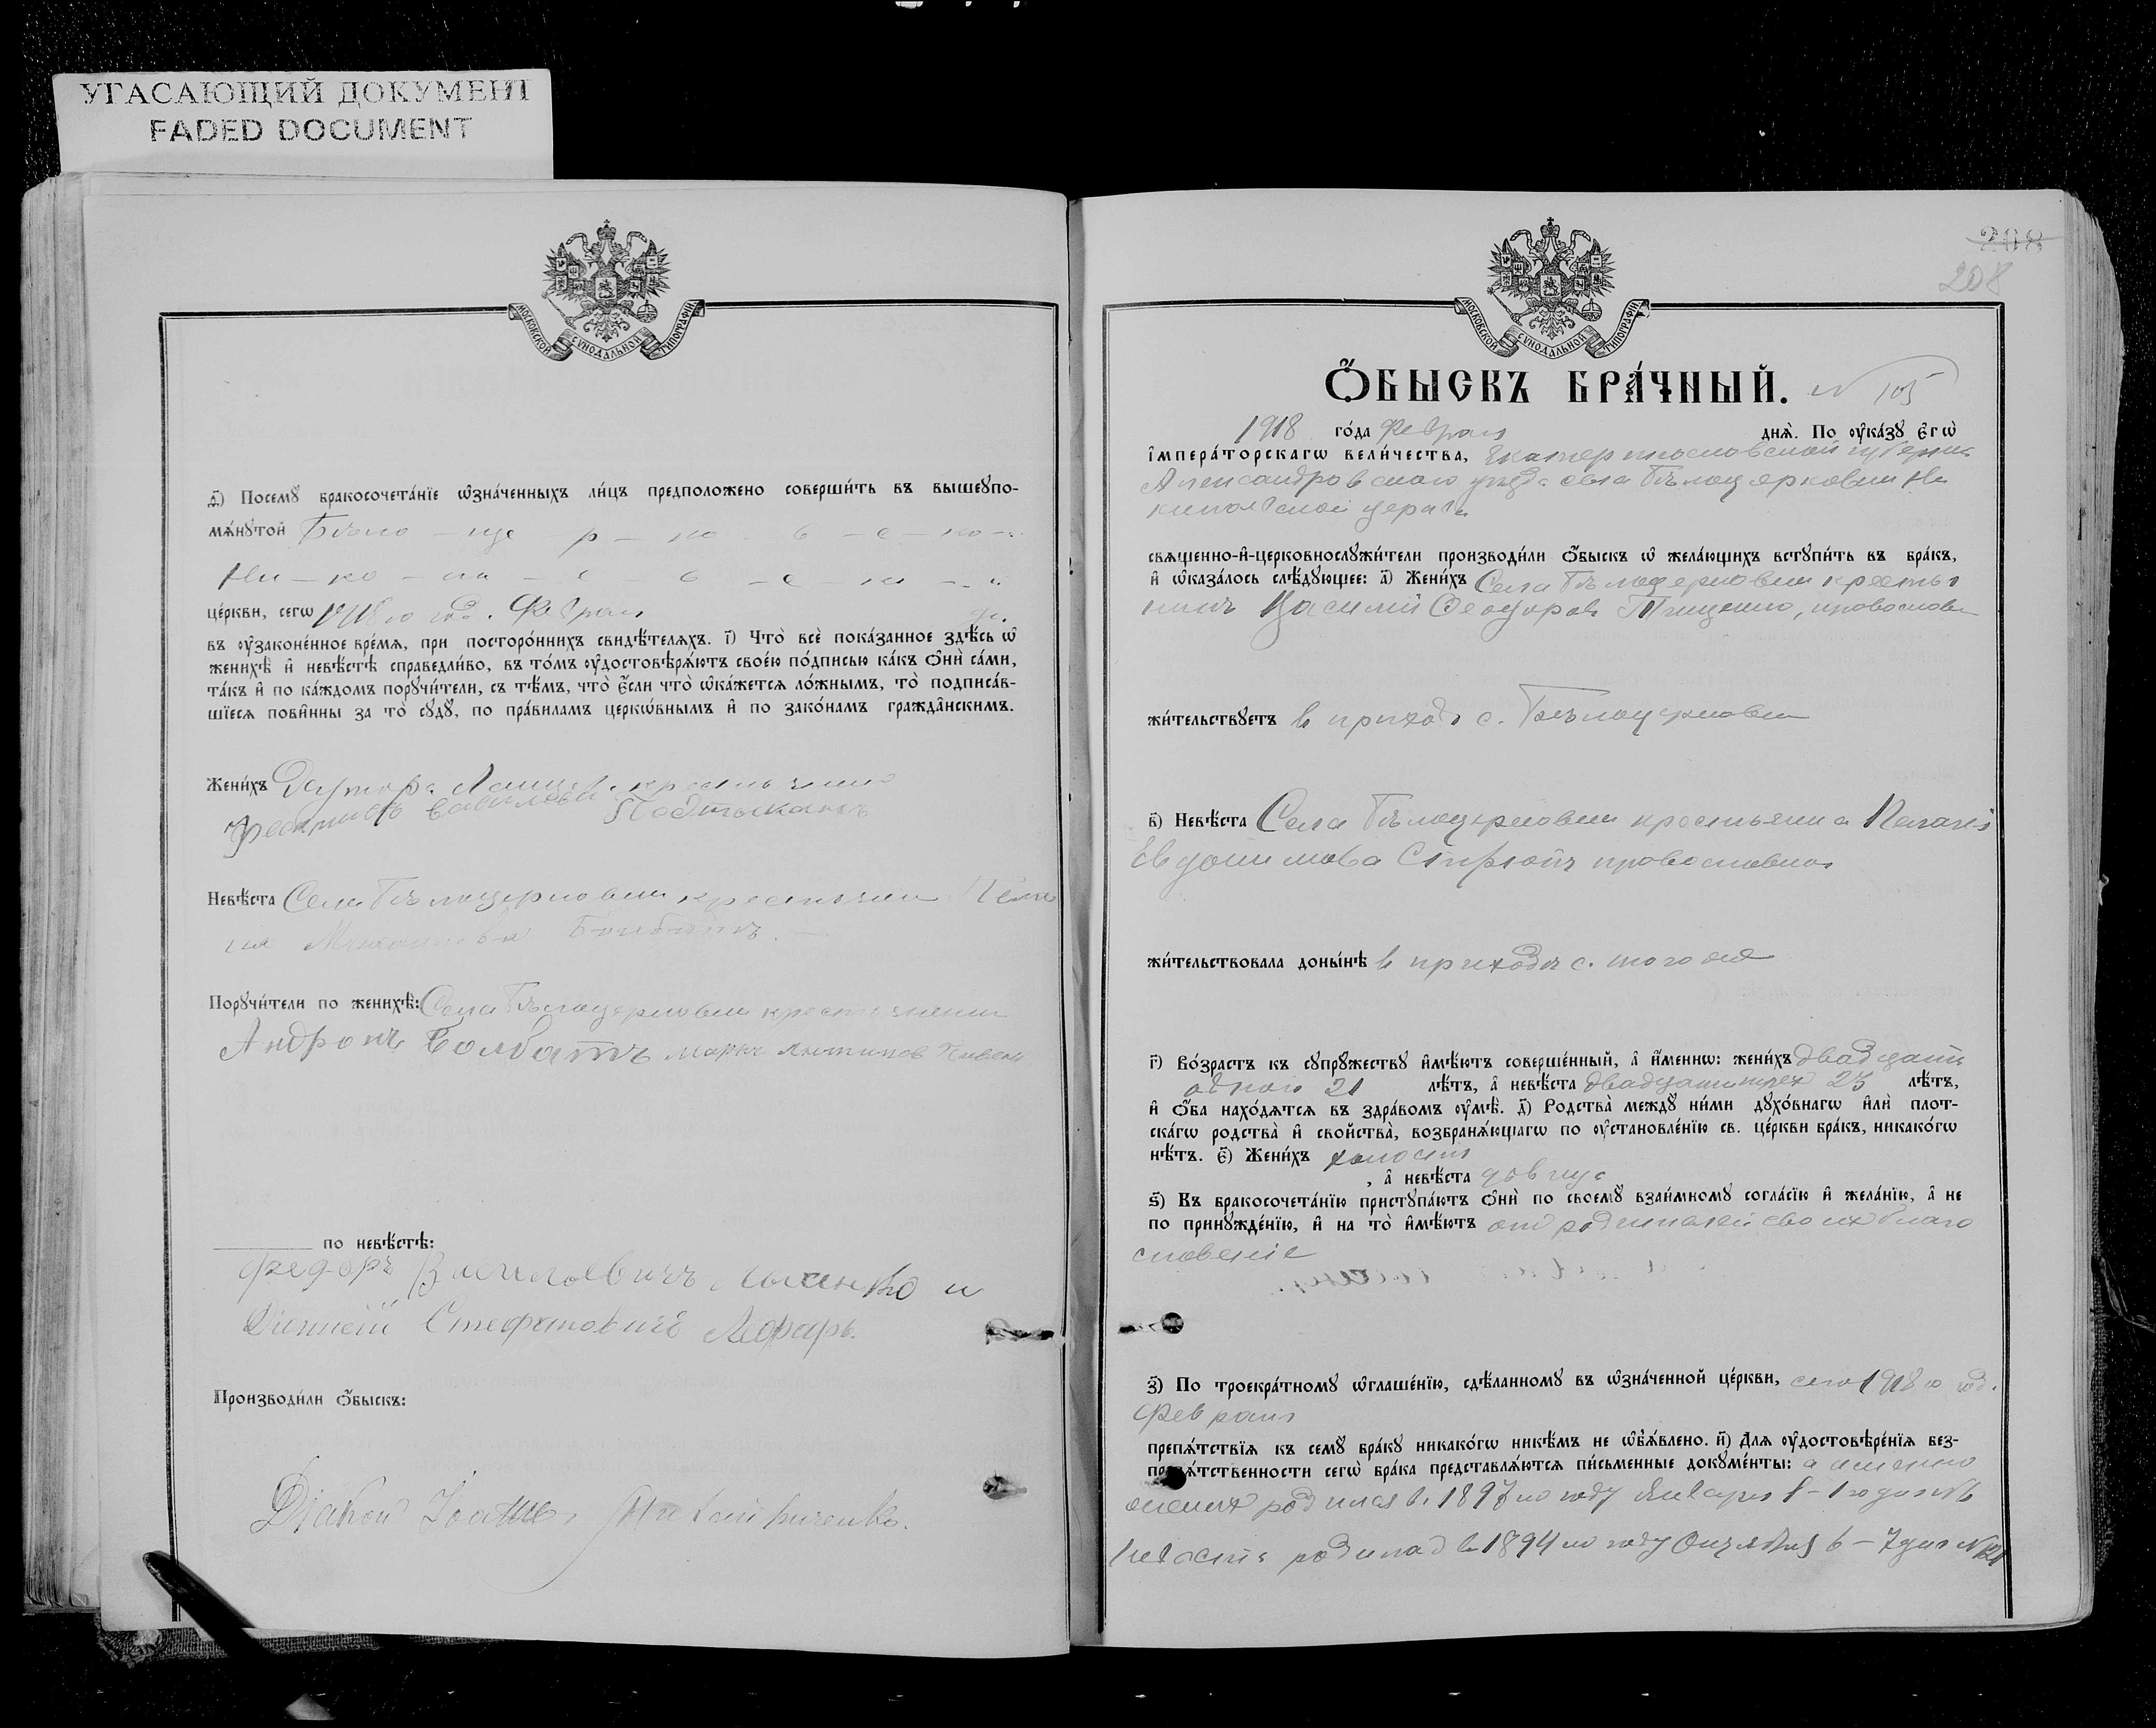 УГАСАЮЩИЙ ДОКУМЕНТ
FADED DOCUMENT
МОСКОВСКОЙ СѴНОДАЛЬНОЙ ТИПОГРАФІИ
д҃) Посемꙋ бракосочета́нїе ѡ҆зна́ченныхъ ли́цъ предположено соверши́ть въ вышеꙋпо-
мѧ́нꙋтой Бѣло - це - р - ко - в - с - ко -
Ни - ко - ла - е - в - с - ко -
це́ркви, сегѡ 1918го год. Февраля
въ ᲂу҆зако́ненное вре́мѧ, при посторо́ннихъ свидѣ́телѧхъ. і҃) Что̀ всѐ пока́занное здѣ́сь ѡ҆
женихѣ̀ и҆ невѣ́стѣ справедли́во, въ то́мъ ᲂу҆достовѣрѧ́ютъ свое́ю по́дписью ка́къ ѻ҆нѝ са́ми,
та́къ и҆ по ка́ждомъ порꙋчи́тели, съ тѣ́мъ, что̀ є҆́сли что̀ ѡ҆ка́жетсѧ ло́жнымъ, то̀ подписа́в-
шїесѧ пови́нны за то̀ сꙋдꙋ̀, по пра́виламъ церко́внымъ и҆ по зако́намъ гражда́нскимъ.
Жени́хъ крестьянинъ
Подтыканъ
Невѣ́ста Села Бѣлоцерковки крестьянка Пела
гія
Порꙋчи́тели по женихѣ̀: Села Бѣлоцерковки крестьянинъ
Андронъ Болбатъ Марк Антипов
по невѣ́стѣ:
Федоръ Васильевичъ Лысенко и
Стефановичъ
Производи́ли ѻ҆́быскъ:
Діаконъ Іоаннъ
208
208
МОСКОВСКОЙ СѴНОДАЛЬНОЙ ТИПОГРАФІИ
Ѻ҆́БЫСКЪ БРА́ЧНЫЙ. N 105
1918 го́да Февраля днѧ̀. По ᲂу҆ка́зꙋ є҆гѡ̀
і҆мпера́торскагѡ вели́чества, Екатеринославской губерніи
Александровскаго уѣзда села Бѣлоцерковки Ни
колаевской церкви
свѧще́нно-и҆-церковнослꙋжи́тели производи́ли ѻ҆́быскъ ѡ҆ жела́ющихъ встꙋпи́ть въ бра́къ,
и҆ ѡ҆каза́лось слѣ́дꙋющее: а҃) Жени́хъ Села Бѣлоцерковки крестья
нинъ Василій Феодоровъ Тищенко, православн
жи́тельствꙋетъ въ приходѣ с. Бѣлоцерковки
в҃) Невѣ́ста Села Бѣлоцерковки крестьянка Пелагія
Евдокимова православная
жи́тельствовала доны́нѣ въ приходѣ с. того же
г҃) Во́зрастъ къ сꙋпрꙋ́жествꙋ и҆мѣ́ютъ соверше́нный, а҆ и҆́меннѡ: жени́хъ двадцати
одного 21 лѣ́тъ, а҆ невѣ́ста двадцати трех 23 лѣ́тъ,
и҆ ѻ҆́ба нахо́дѧтсѧ въ здра́вомъ ᲂу҆мѣ̀. д҃) Родства̀ междꙋ̀ ни́ми дꙋхо́внагѡ и҆лѝ плот-
ска́гѡ родства̀ и҆ сво́йства, возбранѧ́ющагѡ по ᲂу҆становле́нїю св. це́ркви бра́къ, никако́гѡ
нѣ́тъ. є҃) Жени́хъ холостъ
, а҆ невѣ́ста дѣвица
ѕ҃) Въ бракосочета́нїю пристꙋпа́ютъ ѻ҆нѝ по своемꙋ̀ взаи́мномꙋ согла́сїю и҆ жела́нїю, а҆ не
по принꙋжде́нїю, и҆ на то̀ и҆мѣ́ютъ от родителей своих благо
словеніе
з҃) По троекра́тномꙋ ѡ҆глаше́нїю, сдѣ́ланномꙋ въ ѡ҆зна́ченной це́ркви, сего 1918го год.
Февраля
препѧ́тствїѧ къ семꙋ̀ бра́кꙋ никако́гѡ никѣ́мъ не ѡ҆б̾ѧ́влено. и҃) Длѧ ᲂу҆достовѣре́нїѧ без-
препѧ́тственности сегѡ̀ бра́ка представлѧ́ютсѧ пи́сьменные докꙋме́нты: а именно
жених родился в 1897го году Января
невѣста родилась в 1894го году Октября 6 - 7 дня N 121